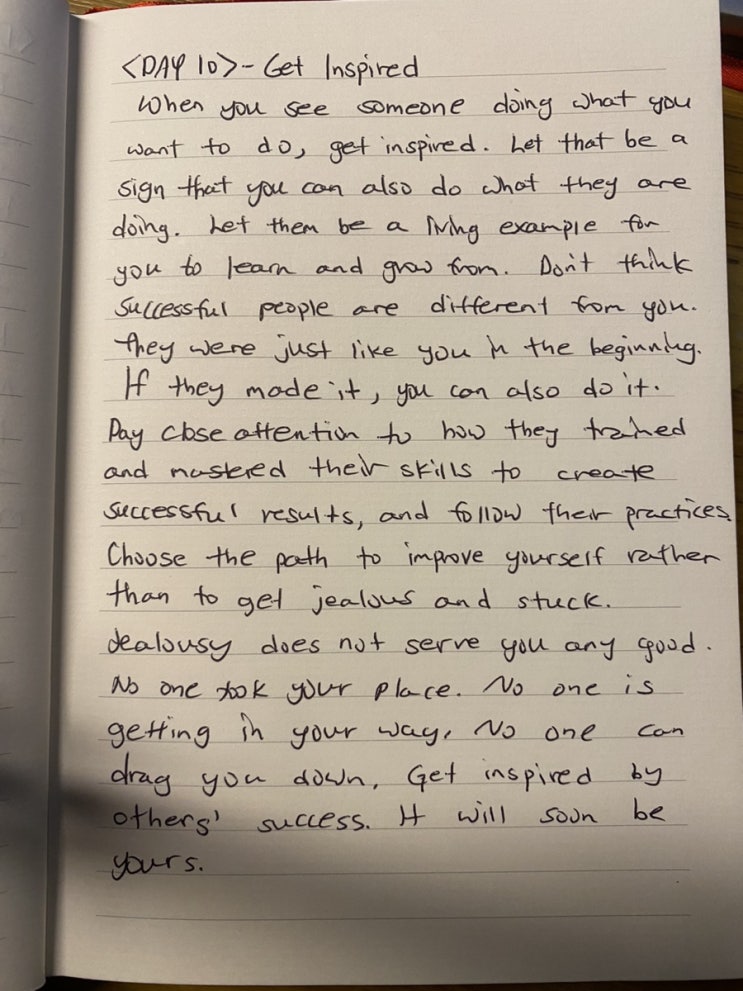 <DAY 10> - Get Inspired
When you see someone doing what you
want to do, get inspired. Let that be a
sign that you can also do what they are
doing. Let them be a living example for
you to learn and grow from. Don't think
successful people are different from you.
They were just like you in the beginning.
If they made it, you can also do it.
Pay close attention to how they trained
and mastered their skills to create
successful results, and follow their practices.
Choose the path to improve yourself rather
than to get jealous and stuck.
Jealousy does not serve you any good.
No one took your place. No one is
getting in your way. No one can
drag you down. Get inspired by
others' success. It will soon be
yours.